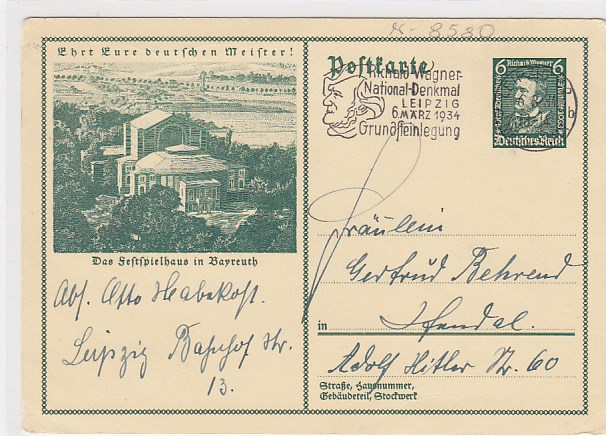 N-8580
Ehrt Eure deutschen Meister!
Das Festspielhaus in Bayreuth
Abs. Otto Habekost.
Leipzig Str.
13.
Postkarte
Richard-Wagner-
National-Denkmal
LEIPZIG
6.MÄRZ 1934
Grundsteinlegung
6 Richard Wagner 6
Deutsches Reich
b
Fräulein
Gertrud Behrend
in Stendal.
Adolf Hitler Str. 60
Straße, Hausnummer,
Gebäudeteil, Stockwerk